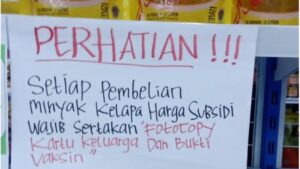 PERHATIAN !!!
Setiap Pembelian
Minyak Kelapa Harga Subsidi
Wajib Sertakan "Fotocopy
Kartu Keluarga Dan Bukti
Vaksin"